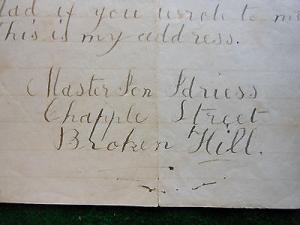 lad if you wrote to me
this is my address.
Master Ion Idriess
Chapple Street
Broken Hill.